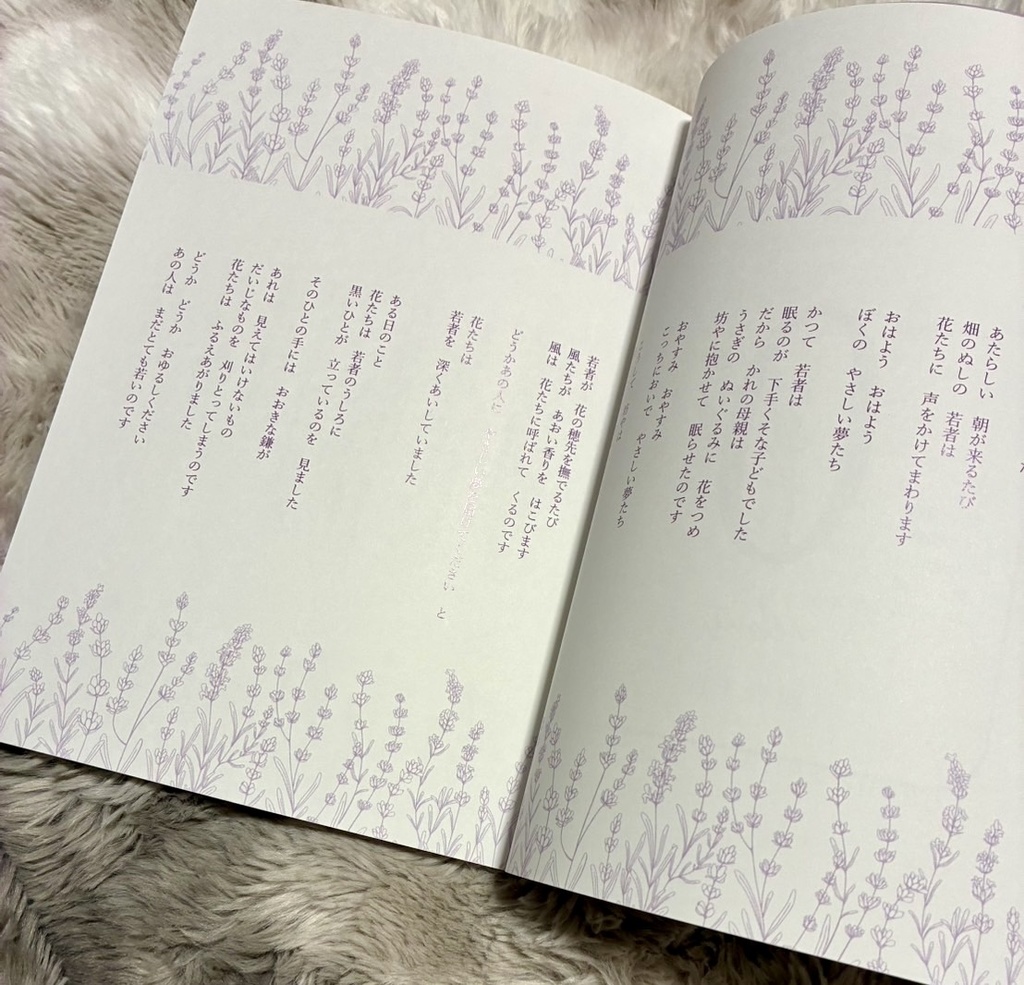 あたらしい 朝が来るたび
畑のぬしの 若者は
花たちに 声をかけてまわります
おはよう おはよう
ぼくの やさしい夢たち
かつて 若者は
眠るのが 下手くそな子どもでした
だから かれの母親は
うさぎの ぬいぐるみに 花をつめ
坊やに抱かせて 眠らせたのです
おやすみ おやすみ
こっちにおいで やさしい夢たち
若者が 花の穂先を撫でるたび
風たちが あおい香りを はこびます
風は 花たちに呼ばれて くるのです
どうかあの人に ください と
花たちは
若者を 深くあいしていました
ある日のこと
花たちは 若者のうしろに
黒いひとが 立っているのを 見ました
そのひとの手には おおきな鎌が
あれは 見えてはいけないもの
だいじなものを 刈りとってしまうのです
花たちは ふるえあがりました
どうか どうか おゆるしください
あの人は まだとても若いのです